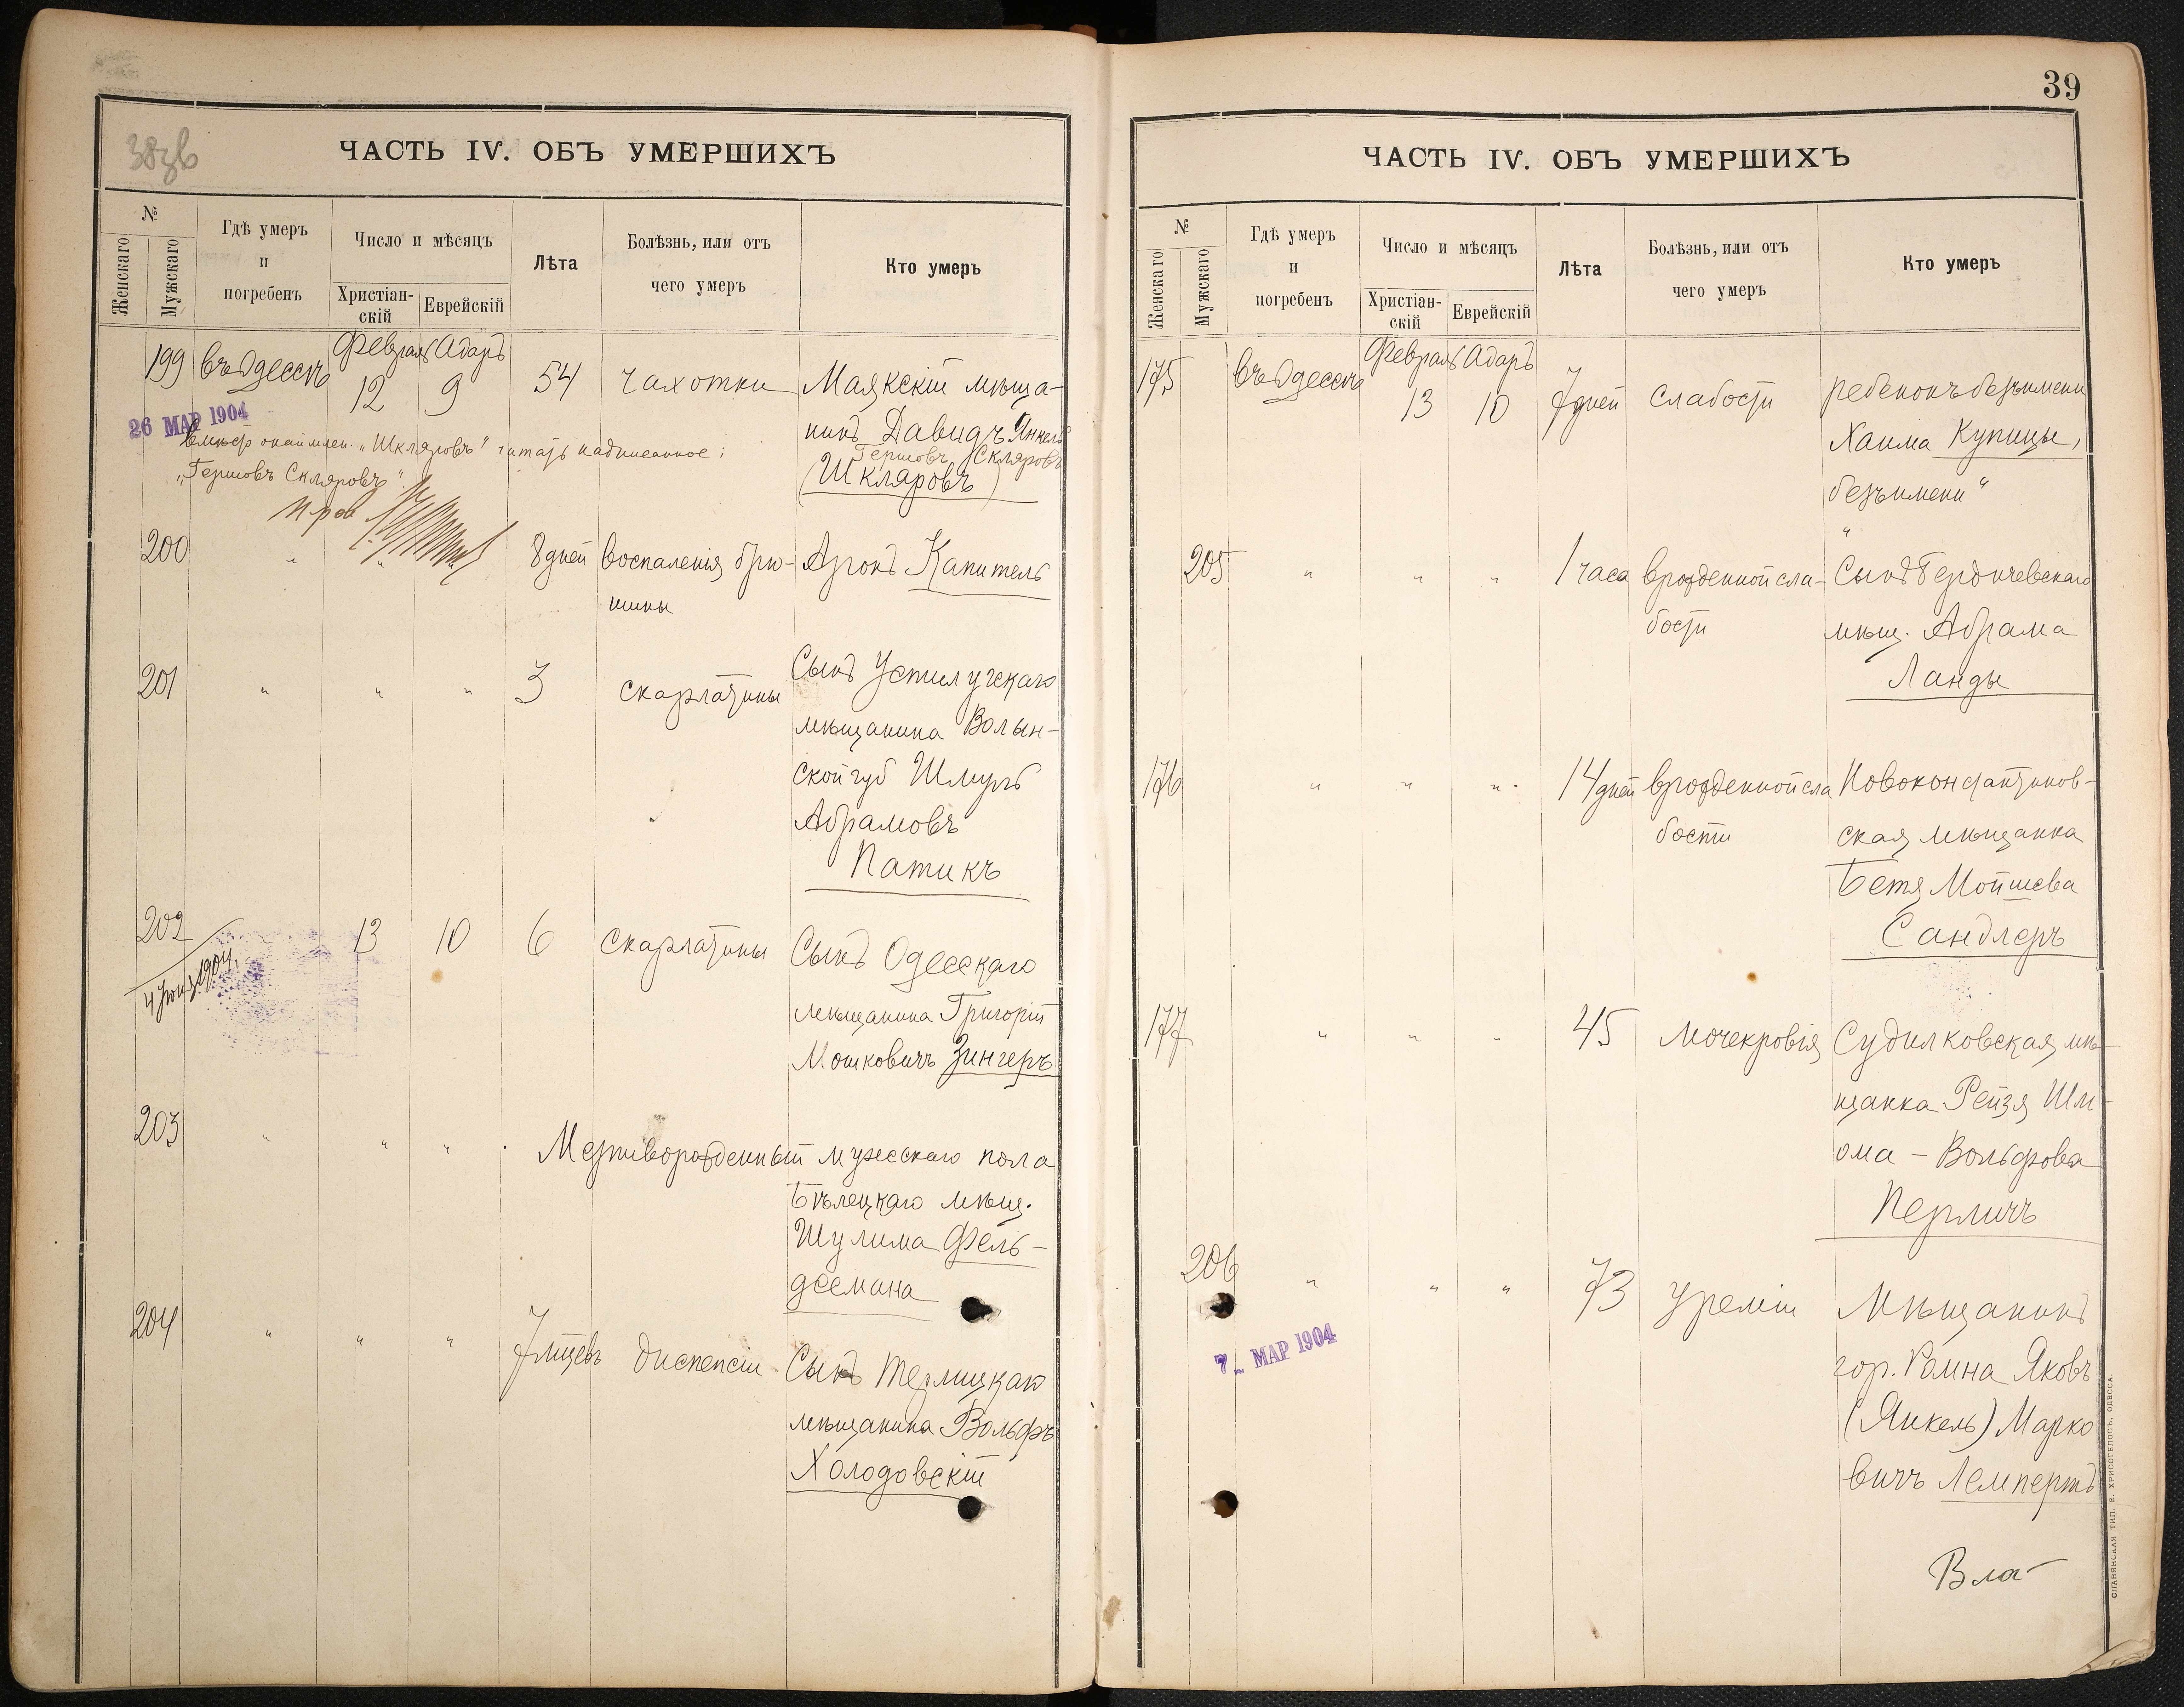 38зв
ЧАСТЬ IV. ОБЪ УМЕРШИХЪ
№
Женскаго
Мужскаго
Гдѣ умеръ
и
погребенъ
Число и мѣсяцъ
Христіан-
скій
Еврейскій
Лѣта
Болѣзнь, или отъ
чего умеръ
Кто умеръ
199 въ Одессѣ Февраль Адаръ
12 9 54 чахотки Маякскій мѣща-
нинъ Давидъ Янкель
Гершовъ Скляровъ
(Шкляровъ)
26 МАР 1904
вмѣсто окаймлен. „Шкляровъ" читать надписанное:
„Гершовъ Скляровъ"
200 " " 8 дней воспаленія брю- Аронъ Капитель
шины
201 " " " 3 скарлатины Сынъ Устилугскаго
мѣщанина Волын-
ской губ. Шмуль
Абрамовъ
Патикъ
202 13 10 6 скарлатины Сынъ Одесскаго
4 1904
мѣщанина Григорій
Мошковичъ Зингеръ
203 " " " Мертворожденный мужескаго пола
Бѣлецкаго мѣщ.
Шулима Фель-
дсемана
204 " " " 7 мцевъ диспепсіи Сынъ Терлицкаго
мѣщанина Вольфъ
Холодовскій
39
ЧАСТЬ IV. ОБЪ УМЕРШИХЪ
№
Женскаго
Мужскаго
Гдѣ умеръ
и
погребенъ
Число и мѣсяцъ
Христіан-
скій
Еврейскій
Лѣта
Болѣзнь, или отъ
чего умеръ
Кто умеръ
175 въ Одессѣ Февраль Адаръ
13 10 7 дней слабости ребенокъ безъимени
Хаима Купицы,
безъимени"
205 " " " 1 часа врожденной сла- Сынъ Бердичевскаго
бости мѣщ. Абрама
Ланды
176 " " " 14 дней врожденной сла Новоконстантинов-
бости ская мѣщанка
Бетя Мойшева
Сандлеръ
177 " " " 45 мочекровія Судилковская мѣ-
щанка Рейзя Шли-
ома - Вольфова
Перличъ
206 " " " 73 уреміи Мѣщанинъ
7 - МАР 1904
гор. Ромна Яковъ
(Янкель) Марко
вичъ Лемпертъ
Вла-
СЛАВЯНСКАЯ ТИП. Е. ХРИСОГЕЛОСЪ, ОДЕССА.